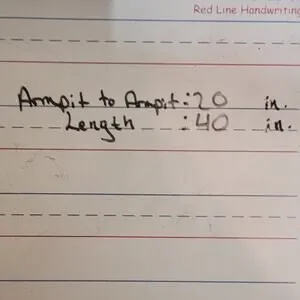 Red Line Handwriting
Armpit to Armpit: 20 in.
Length : 40 in.